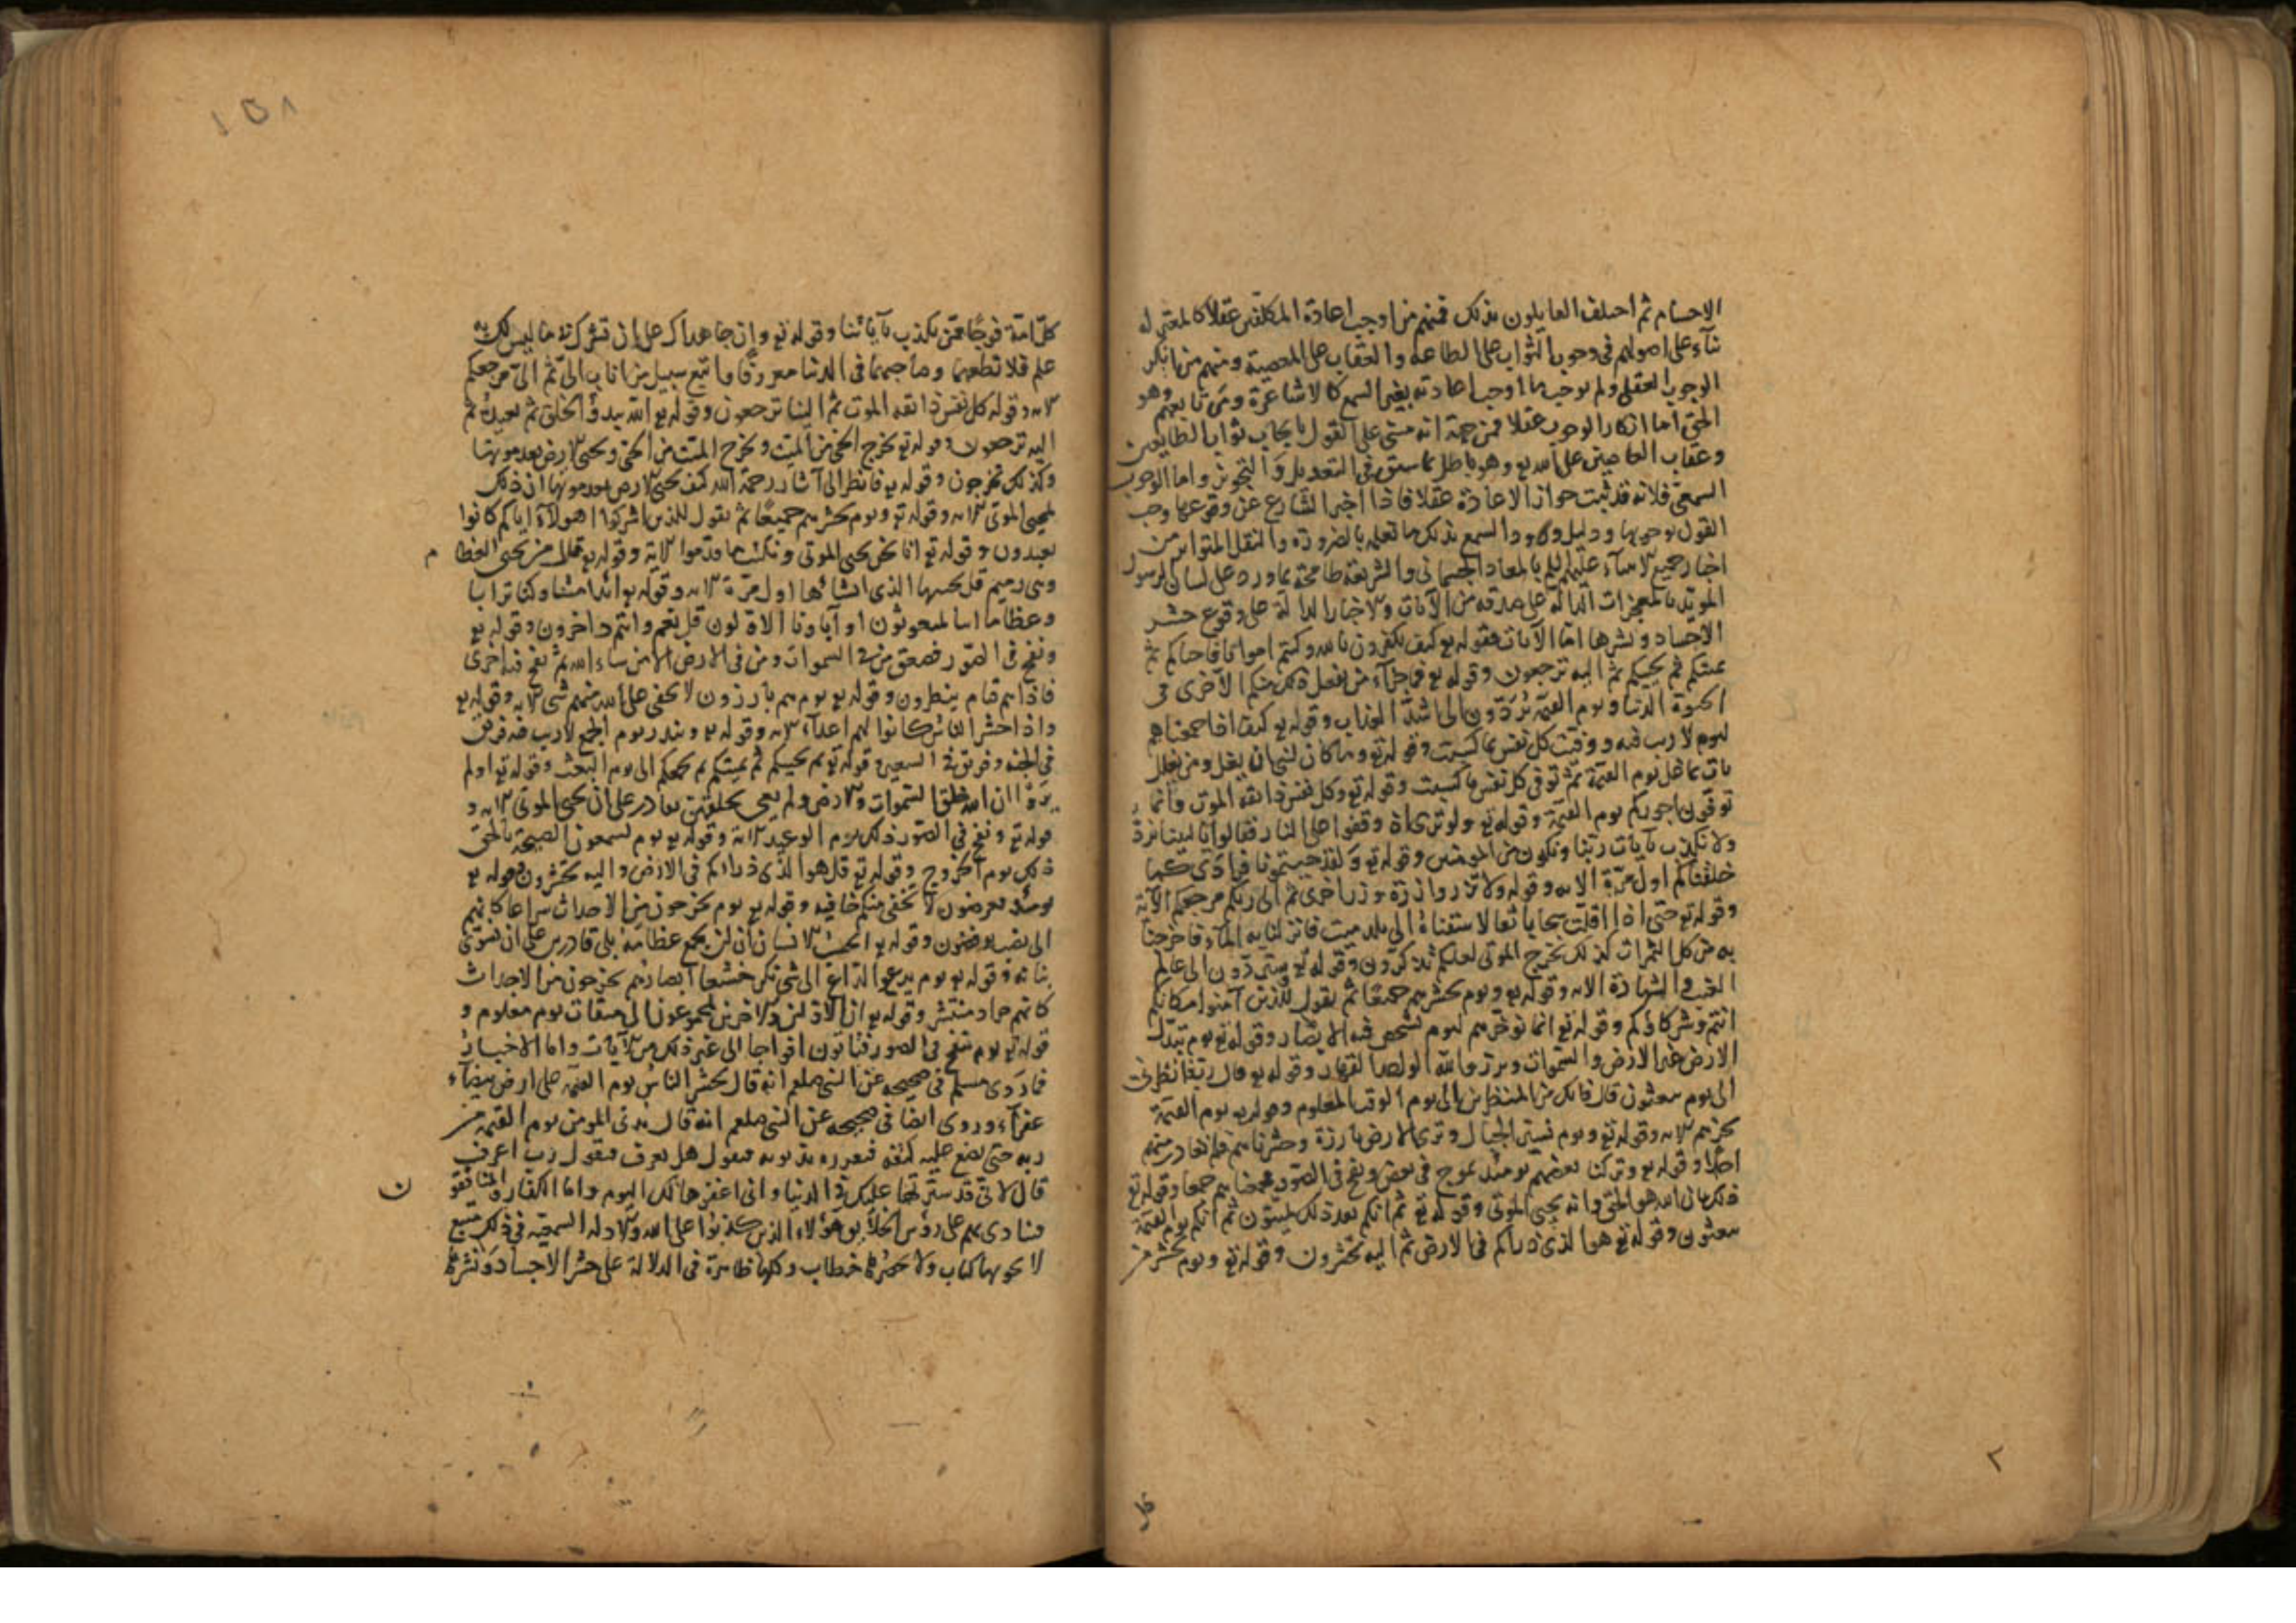 الاجسام ثم اختلف القايلون بذلك فمنهم من اوجب اعادة المكلفين عقلا كالمعتزلة
بناء على اصولهم فى وجوب الثواب على الطاعه والعقاب على المعصية ومنهم من انكر
الوجوب العقلى ولم يوجب ما اوجب اعادته بغير السمع كالاشاعرة ومن تابعهم وهو
الحق اما انكار الوجوب عقلا فمن جهة انه مبنى على القول بايجاب ثواب الطايعين
وعقاب العاصين على الله تع وهو باطل بما سبق فى التعديل والتجوير واما الوجوب
السمعى فلانه قد ثبت جواز الاعادة عقلا فاذا اخبر الشارع عن وقوعها وجب
القول بوجوبها ودليل ورود السمع بذلك ما نعلمه بالضرورة والنقل المتواتر من
اخبار جميع الانبياء عليهم بالمعاد الجسمانى والشريعة طافحة بما ورد على لسان الرسول
المويد بالمعجزات الدالة على صدقه من الآيات والاخبار الدالة على وقوع حشر
الاجساد ونشرها اما الآيات فقوله تع كيف تكفرون بالله وكنتم امواتا فاحياكم ثم
يميتكم ثم يحييكم ثم اليه ترجعون وقوله تع فما جزاء من يفعل ذلك منكم الا خزى فى
الحيوة الدنيا ويوم القيمة يردون الى اشد العذاب وقوله تع كيف اذا جمعناهم
ليوم لا ريب فيه ووفيت كل نفس ما كسبت وقوله تع وما كان لنبى ان يغل ومن يغلل
يات بما غل يوم القيمة ثم توفى كل نفس ما كسبت وقوله تع وكل نفس ذايقة الموت وانما
توفون اجوركم يوم القيمة وقوله تع ولو ترى اذ وقفوا على النار فقالوا يا ليتنا نرد
ولا نكذب بآيات ربنا ونكون من المومنين وقوله تع ولقد جيتمونا فرادى كما
خلقناكم اول مرة الايه وقوله ولا تزر وازرة وزر اخرى ثم الى ربكم مرجعكم الآية
وقوله تع حتى اذا اقلت سحابا ثقالا سقناه الى بلد ميت فانزلنا به الماء فاخرجنا
به من كل الثمرات كذلك نخرج الموتى لعلكم تذكرون وقوله تع ستردون الى عالم
الغيب والشهادة الايه وقوله تع ويوم نحشرهم جميعا ثم نقول للذين آمنوا مكانكم
انتم وشركاؤكم وقوله تع انما نوخرهم ليوم تشخص فيه الابصار وقوله تع يوم تبدل
الارض غير الارض والسموات وبرزوا لله الواحد القهار وقوله تع قال رب فانظرنى
الى يوم يبعثون قال فانك من المنظرين الى يوم الوقت المعلوم وقوله تع يوم القيمة
نحشرهم الايه وقوله تع ويوم نسير الجبال وترى الارض بارزة وحشرناهم فلم نغادر منهم
احدا وقوله تع وتركنا بعضهم يومئذ يموج فى بعض ونفخ فى الصور فجمعناهم جمعا وقوله تع
ذلك بان الله هو الحق وانه يحيى الموتى وقوله تع ثم انكم بعد ذلك لميتون ثم انكم يوم القيمة
تبعثون وقوله تع هو الذى ذراكم فى الارض ثم اليه تحشرون وقوله تع ويوم نحشر من
٢
١٥٨
كل امة فوجا ممن يكذب بآياتنا وقوله تع وان جاهداك على ان تشرك بى ما ليس لك به
علم فلا تطعهما وصاحبهما فى الدنيا معروفا واتبع سبيل من اناب الى ثم الى مرجعكم
الايه وقوله كل نفس ذايقه الموت ثم الينا ترجعون وقوله تع الله يبدؤ الخلق ثم يعيده ثم
اليه ترجعون وقوله تع يخرج الحى من الميت ويخرج الميت من الحى ويحيى الارض بعد موتها
وكذلك تخرجون وقوله تع فانظر الى آثار رحمة الله كيف يحيى الارض بعد موتها ان ذلك
لمحيى الموتى الايه وقوله تع ويوم نحشرهم جميعا ثم نقول للذين اشركوا اهولاء اياكم كانوا
يعبدون وقوله تع انا نحن نحيى الموتى ونكتب ما قدموا الاية وقوله تع قال من يحيى العظام
وهى رميم قل يحييها الذى انشاها اول مرة الايه وقوله تع ائذا متنا وكنا ترابا
وعظاما اينا لمبعوثون او آباونا الاولون قل نعم وانتم داخرون وقوله تع
ونفخ فى الصور فصعق من فى السموات ومن فى الارض الا من شاء الله ثم نفخ فيه اخرى
فاذا هم قيام ينظرون وقوله تع يوم هم بارزون لا يخفى على الله منهم شى الايه وقوله تع
واذا حشر الناس كانوا لهم اعداء الايه وقوله تع وتنذر يوم الجمع لا ريب فيه فريق
فى الجنة وفريق فى السعير وقوله تع ثم يحييكم ثم يميتكم ثم يجمعكم الى يوم البعث وقوله تع اولم
يروا ان الله خلق السموات والارض ولم يعى بخلقهن بقادر على ان يحيى الموتى الايه و
قوله تع ونفخ فى الصور ذلك يوم الوعيد الاية وقوله تع يوم يسمعون الصيحة بالحق
ذلك يوم الخروج وقوله تع قل هو الذى ذراكم فى الارض واليه تحشرون وقوله تع
يومئذ تعرضون لا تخفى منكم خافيه وقوله تع يوم يخرجون من الاجداث سراعا كانهم
الى نصب يوفضون وقوله تع ايحسب الانسان ان لن نجمع عظامه بلى قادرين على ان نسوى
بنانه وقوله تع يوم يدعو الداع الى شى نكر خشعا ابصارهم يخرجون من الاجداث
كانهم جراد منتشر وقوله تع ان الاولين والاخرين لمجموعون الى ميقات يوم معلوم و
قوله تع يوم ينفخ فى الصور فتاتون افواجا الى غير ذلك من الآيات واما الاخبار
فما روى مسلم فى صحيحه عن النبى صلعم انه قال يحشر الناس يوم القيمه على ارض بيضاء
عفراء وروى ايضا فى صحيحه عن النبى صلعم انه قال يدنى المومن يوم القيمه من
ربه حتى يضع عليه كنفه فيقرره بذنوبه فيقول هل تعرف فيقول رب اعرف
قال فانى قد سترتها عليك فى الدنيا وانى اغفرها لك اليوم واما الكفار والمنافقون
فينادى بهم على رؤس الخلايق هؤلاء الذين كذبوا على الله والادله السمعيه فى ذلك متسع
لا يحويها كتاب ولا يحصرها خطاب وكلها ظاهرة فى الدلالة على حشر الاجساد ونشرها